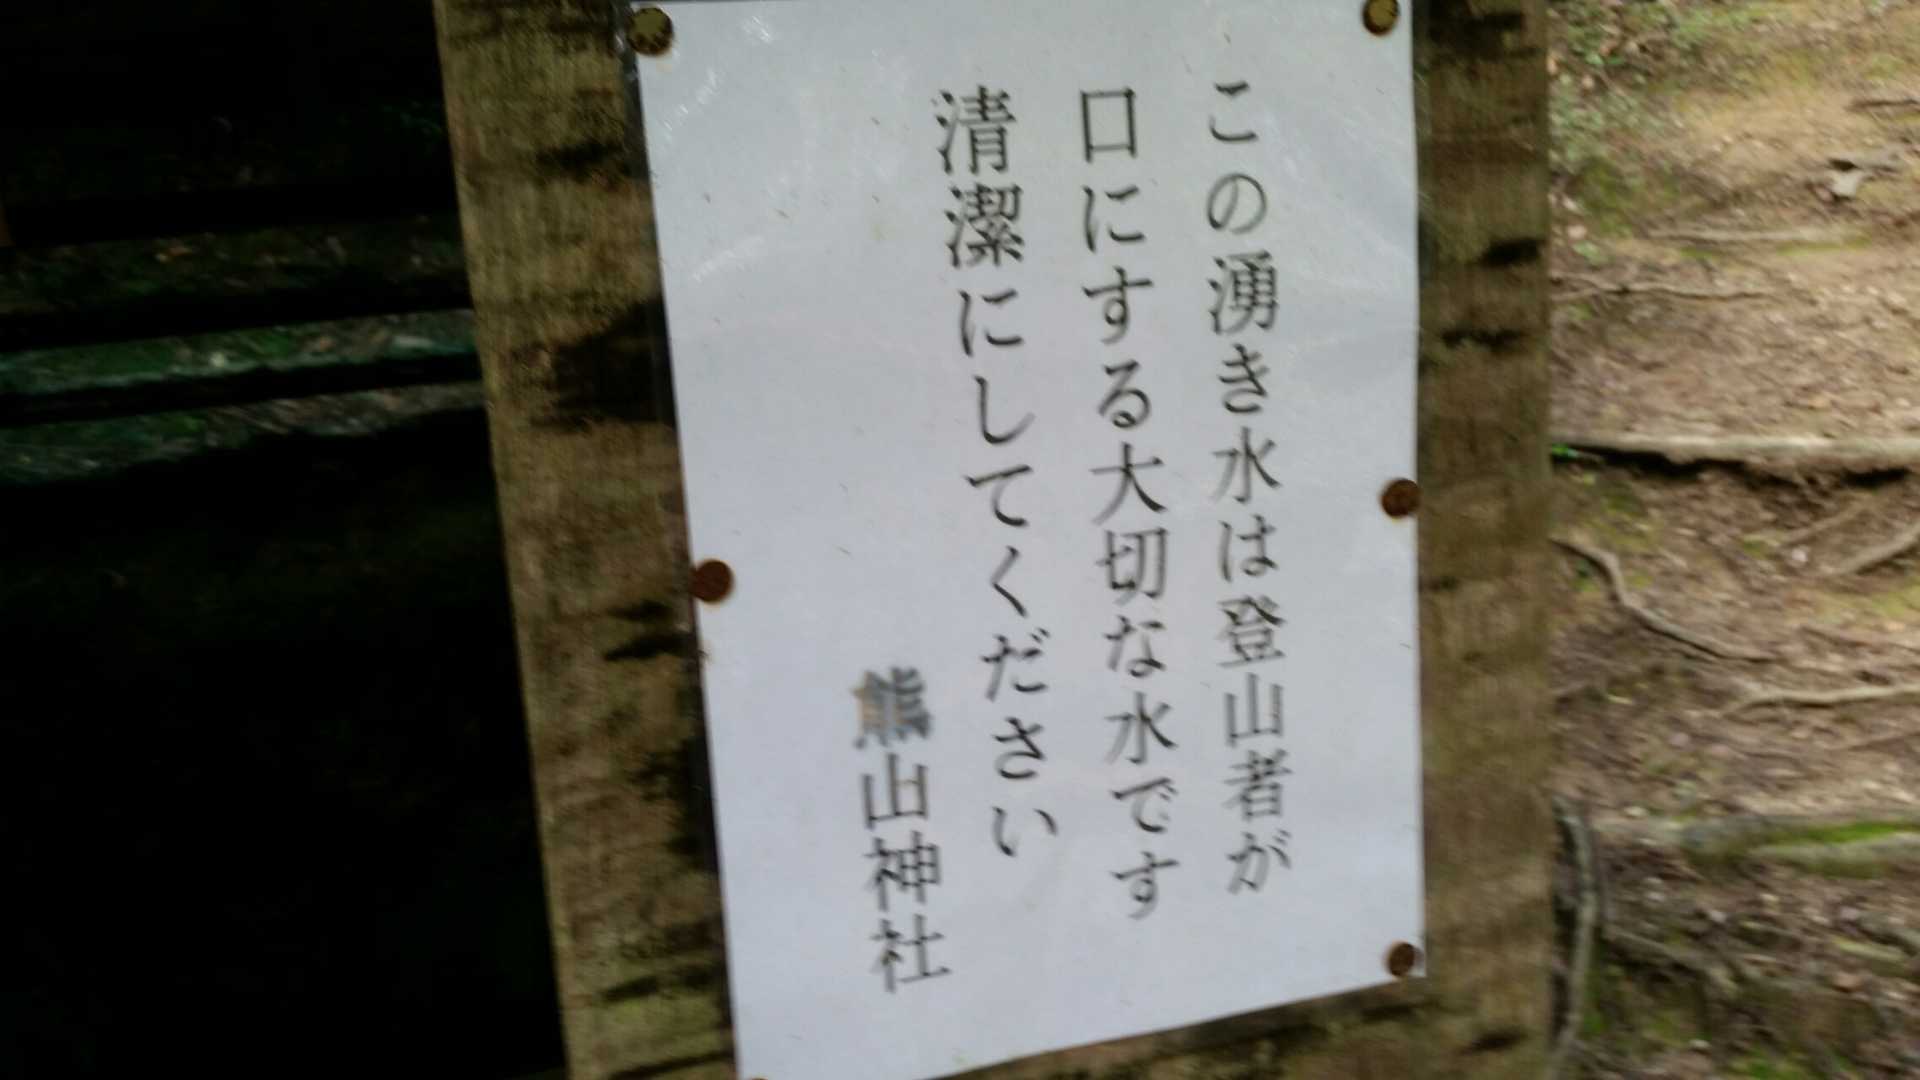 この湧き水は登山者が
口にする大切な水です
清潔にしてください
熊山神社